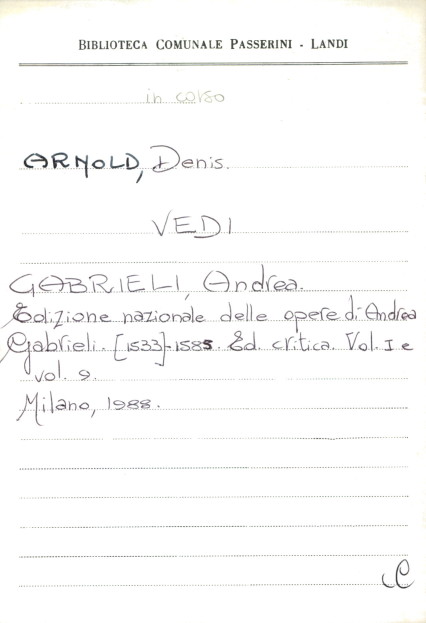 BIBLIOTECA COMUNALE PASSERINI - LANDI
in corso
ARNOLD, Denis.
VEDI
GABRIELI, Andrea.
Edizione nazionale delle opere di Andrea
Gabrieli. [1533]-1585. Ed. critica. Vol. I e
vol. 9.
Milano, 1988.